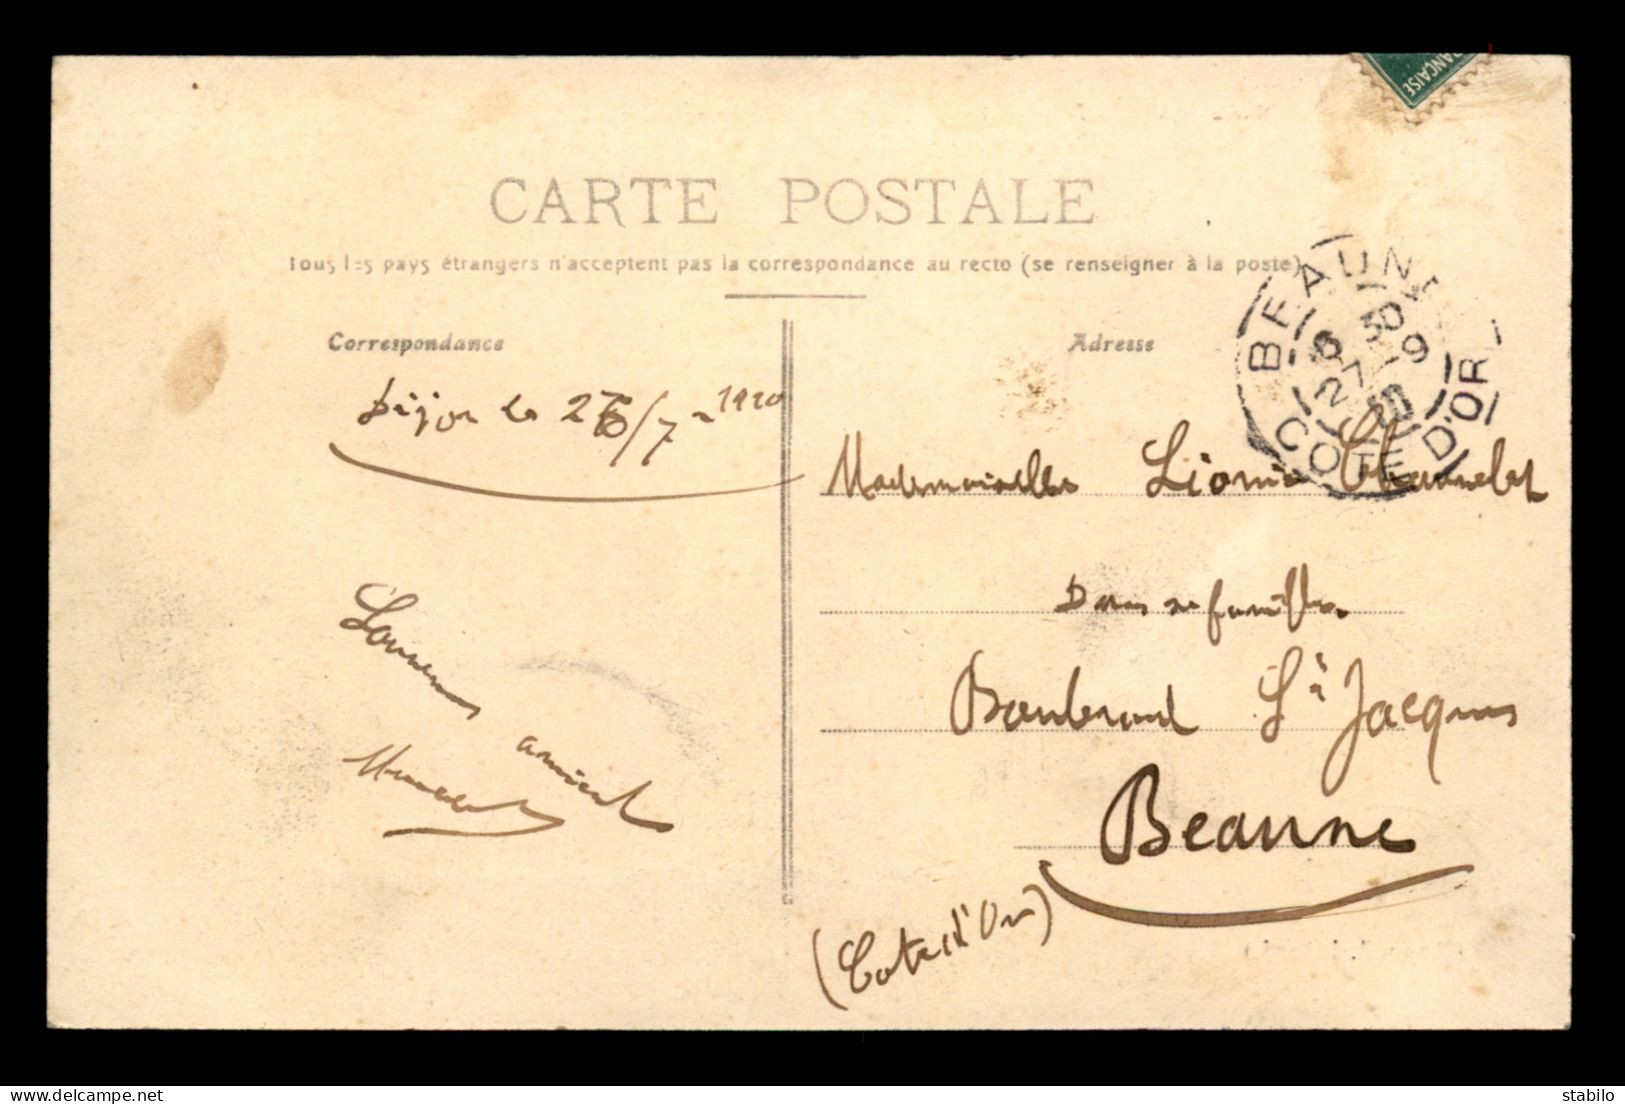 FRANÇAISE
CARTE POSTALE
Tous les pays étrangers n'acceptent pas la correspondance au recto (se renseigner à la poste)
BEAUNE
COTE D'OR
Correspondance
Dijon le 26/7 - 1910
Souvenir
amical
Adresse
Mademoiselle
Dans sa famille
Boulevard St Jacques
Beaune
(Cote d'Or)
delcampe.net
stabilo